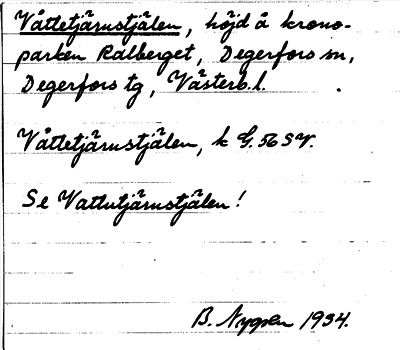 Våttetjärnstjälen, höjd å krono-
parken Ralberget, Degerfors sn,
Degerfors tg, Västerb. l.
Våttetjärnstjälen, k G. 56 SV.
Se Vattutjärnstjälen!
B. 1934.